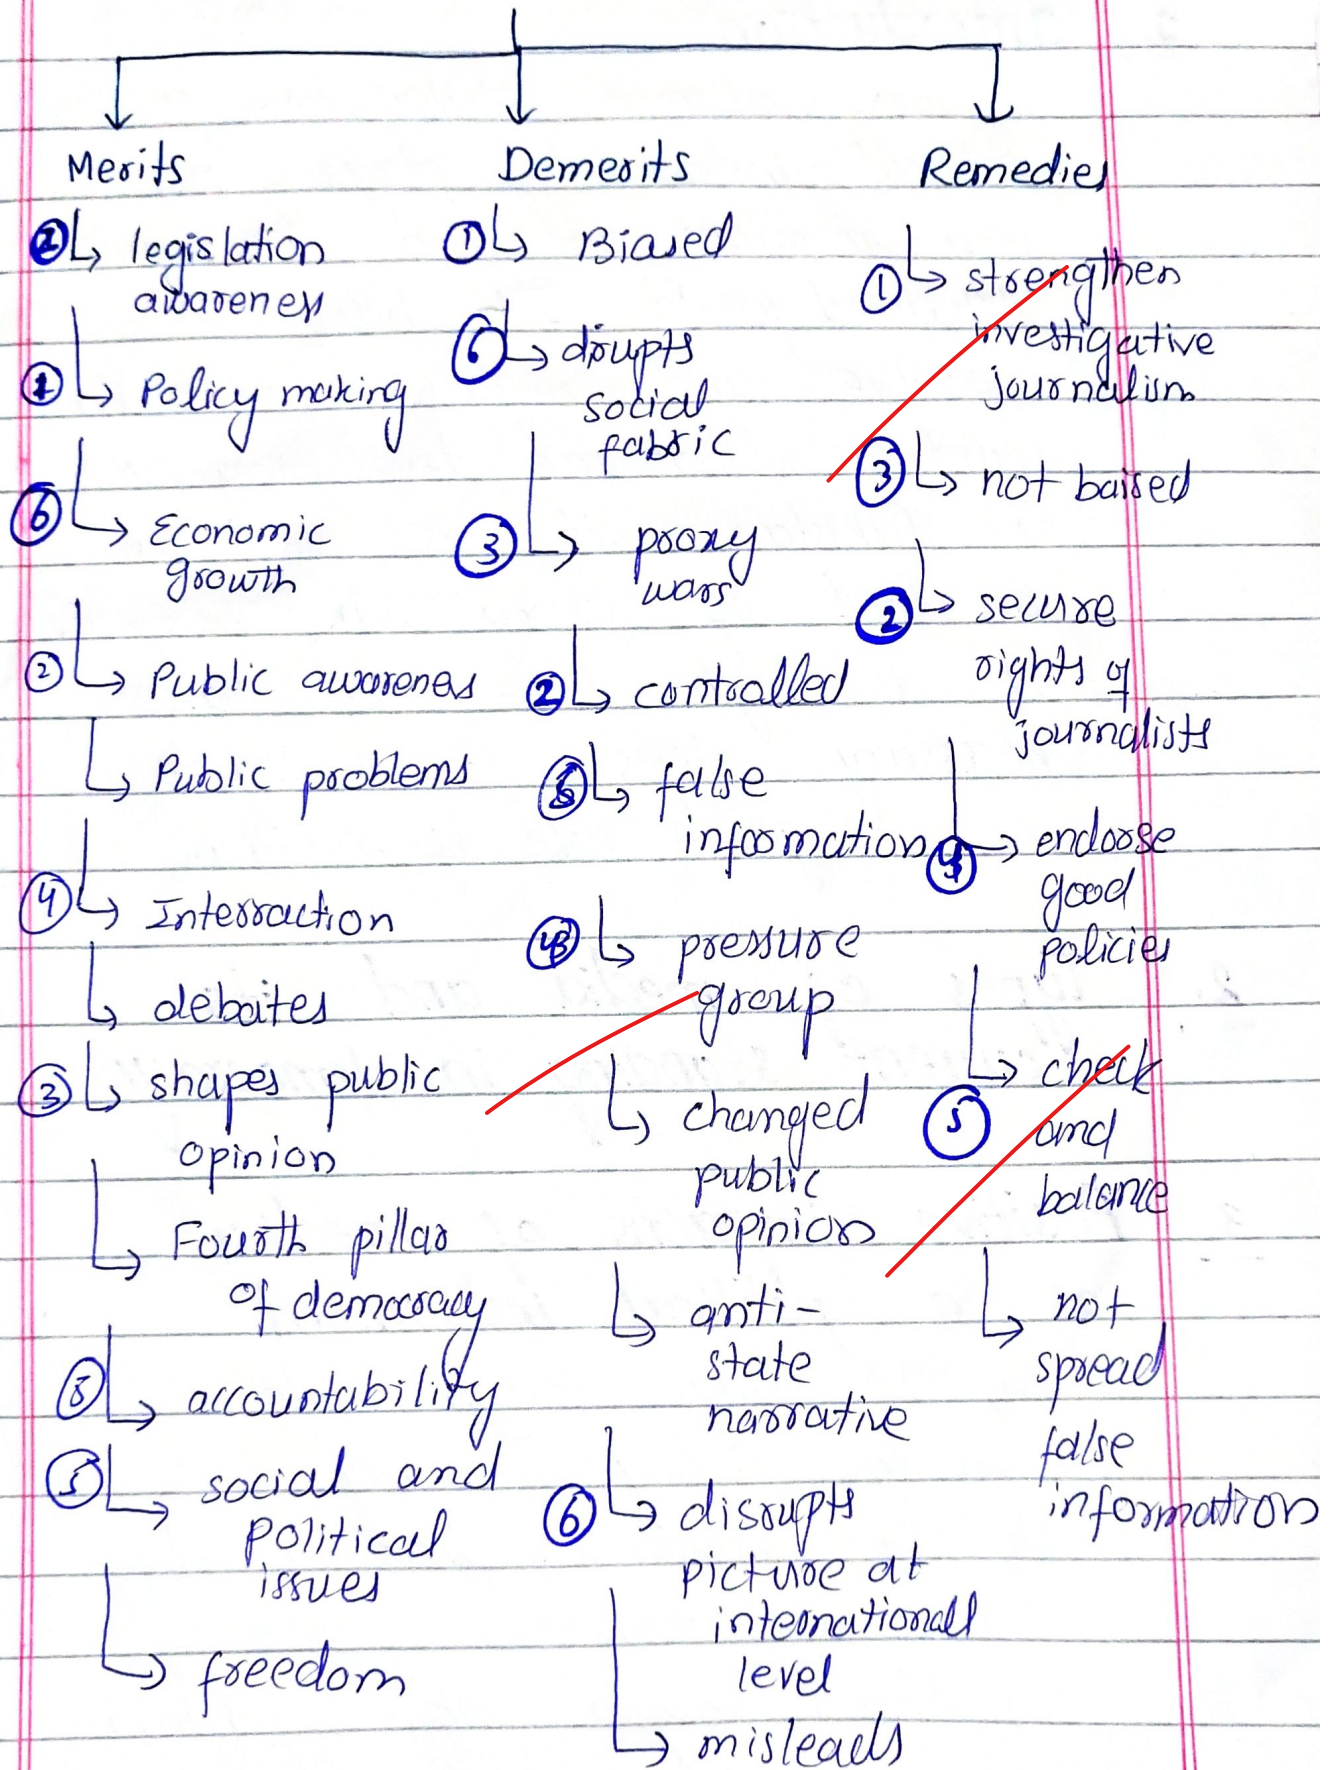 Merits
② legislation
awareness
① Policy making
⑥ Economic
growth
② Public awareness
Public problems
④ Interraction
debaites
③ shapes public
opinion
Fourth pillar
of democracy
accountability
⑤ social and
political
issues
freedom
Demerits
① Biased
⑥ drupts
social
fabric
③ proxy
wars
② controlled
false
information
pressure
group
changed
public
opinion
anti-
state
narrative
⑥ disrupts
picture at
internationall
level
misleads
Remedies
① strengthen
investigative
journalism
③ not baised
② secure
rights of
journalists
endorse
good
policies
⑤ check
and
balance
not
spread
false
information